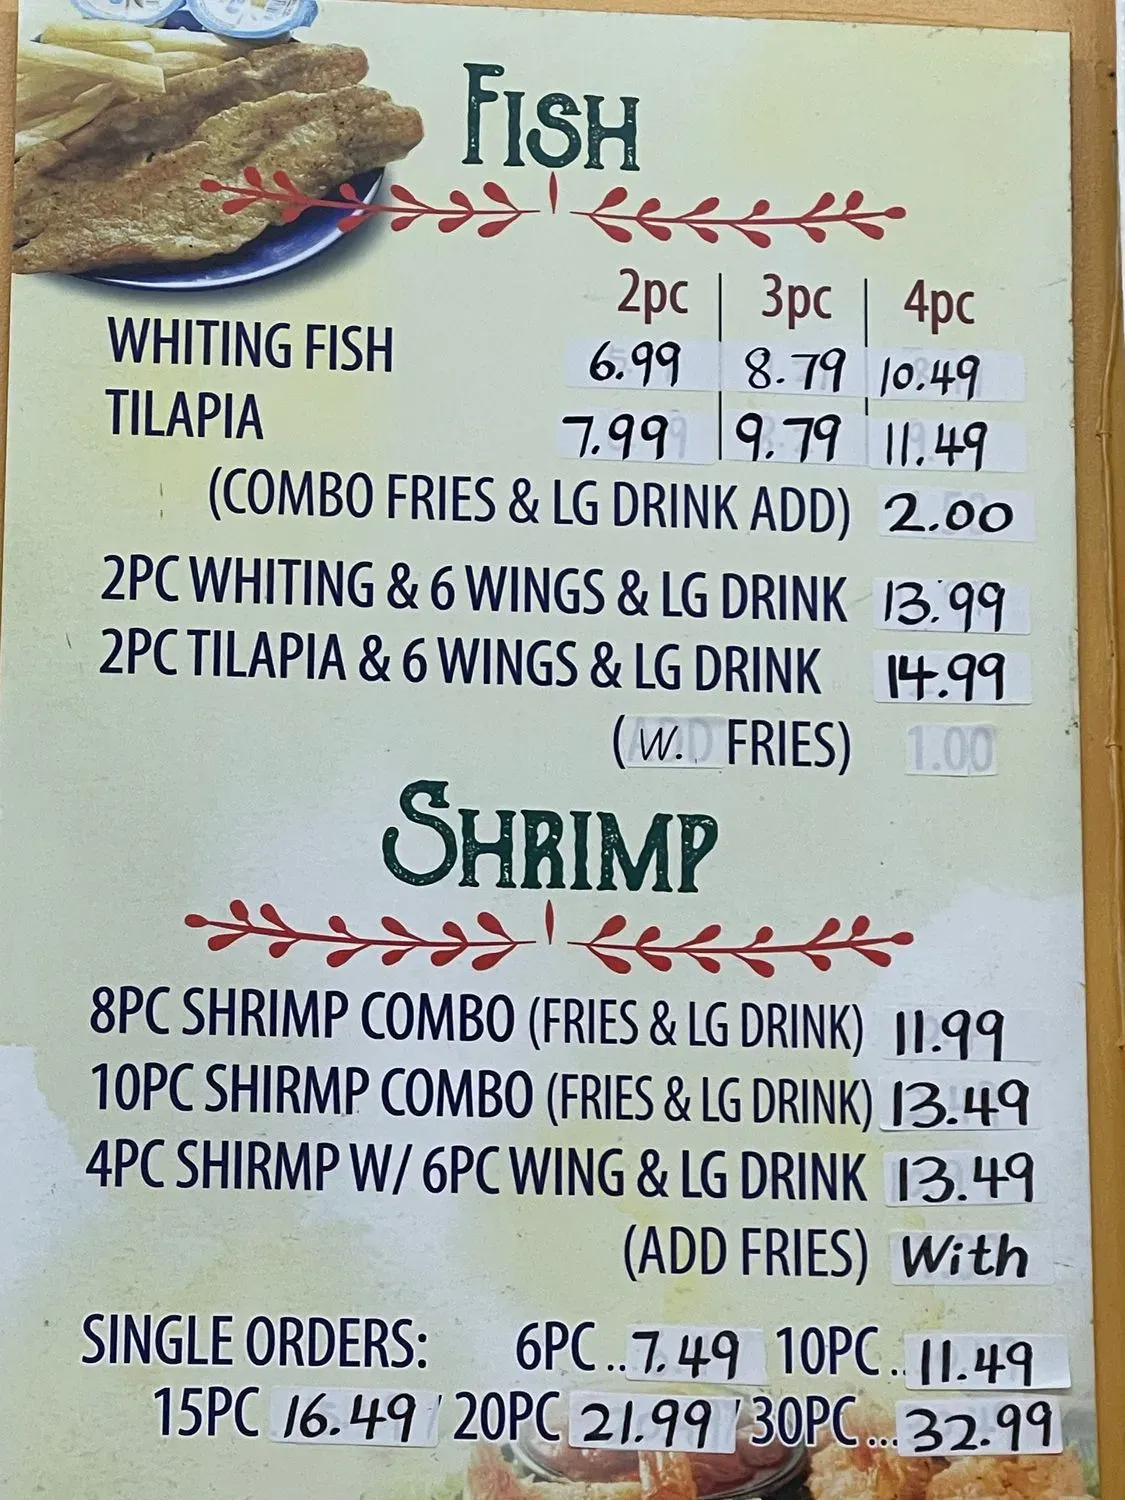 FISH
2pc 3pc 4pc
WHITING FISH 6.99 8.79 10.49
TILAPIA 7.99 9.79 11.49
(COMBO FRIES & LG DRINK ADD) 2.00
2PC WHITING & 6 WINGS & LG DRINK 13.99
2PC TILAPIA & 6 WINGS & LG DRINK 14.99
(W. FRIES) 1.00
SHRIMP
8PC SHRIMP COMBO (FRIES & LG DRINK) 11.99
10PC SHIRMP COMBO (FRIES & LG DRINK) 13.49
4PC SHIRMP W/ 6PC WING & LG DRINK 13.49
(ADD FRIES) With
SINGLE ORDERS: 6PC .. 7.49 10PC .. 11.49
15PC 16.49 / 20PC 21.99 / 30PC ... 32.99